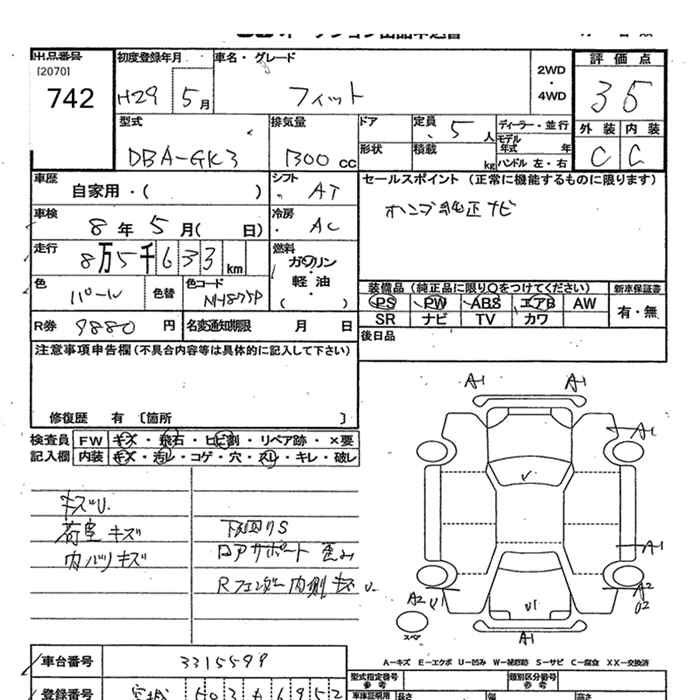 出品番号 初度登録年月 車名・グレード 評価点
[2070]
742
H29 5月 フィット 2WD・4WD 35
外装 内装
C C
型式 排気量 ドア 定員 5人 ディーラー・並行
DBA-GK3 1300cc 形状 積載 kg モデル年式 年
ハンドル 左・右
車歴 自家用・( ) シフト AT
セールスポイント(正常に機能するものに限ります)
純正ナビ
車検 8年5月( 日) 冷房 AC
走行 8万5千633km 燃料 ガソリン・軽油・( )
色 パール 色替 色コード NH875P
装備品(純正品に限り○をつけてください) 新車保証書
PS PW ABS エアB AW 有・無
SR ナビ TV カワ
R券 9880円 名変通知期限 月 日
後日品
注意事項申告欄(不具合内容等は具体的に記入して下さい)
修復歴 有 〔箇所 〕
検査員 FW キズ・飛石・ヒビ割・リペア跡・×要
記入欄 内装 キズ・汚レ・コゲ・穴・スレ・キレ・破レ
A-1 A-1
A-1
キズU.
荷室 キズ 下廻りS
内バリキズ コアサポート 歪み
Rフェンダー内側 キズ U.
A-1
A2 U1 A2 U2
U1
スペア
A-1
A-キズ E-エクボ U-凹み W-補修跡 S-サビ C-腐食 XX-交換済
車台番号 3315599
型式指定番号 類別区分番号
参考 参考
登録番号 宮城 車庫証明用 長さ 幅 高さ